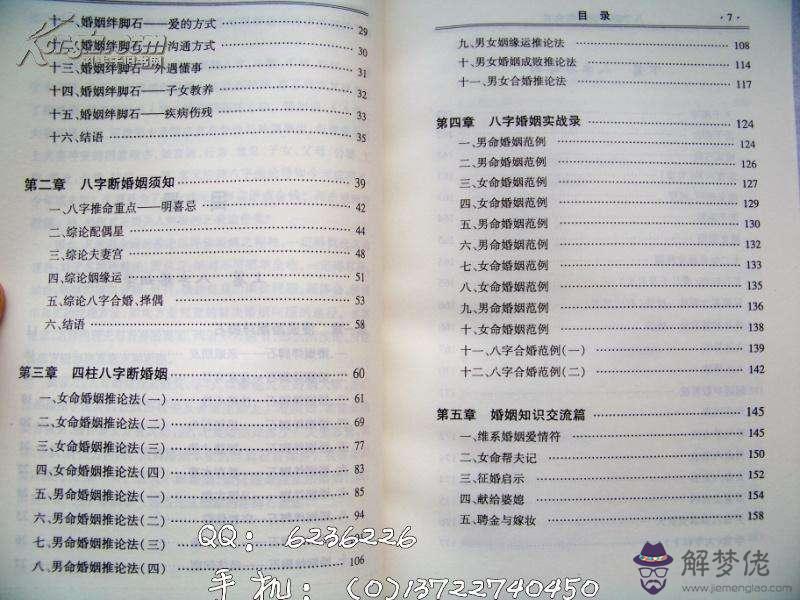 十一、婚姻绊脚石——爱的方式 29
十二、婚姻绊脚石——沟通方式 30
十三、婚姻绊脚石——外遇懂事 31
十四、婚姻绊脚石——子女教养 32
十五、婚姻绊脚石——疾病伤残 33
十六、结语 35
第二章 八字断婚姻须知 39
一、八字推命重点——明喜忌 42
二、综论配偶星 44
三、综论夫妻宫 48
四、综论姻缘运 51
五、综论八字合婚、择偶 53
六、结语 58
第三章 四柱八字断婚姻 60
一、女命婚姻推论法(一) 61
二、女命婚姻推论法(二) 69
三、女命婚姻推论法(三) 77
四、女命婚姻推论法(四) 83
五、男命婚姻推论法(一) 85
六、男命婚姻推论法(二) 94
七、男命婚姻推论法(三) 99
八、男命婚姻推论法(四) 106
目录 ·7·
九、男女姻缘运推论法 108
十、男女婚姻成败推论法 114
十一、男女合婚推论法 117
第四章 八字婚姻实战录 124
一、男命婚姻范例 124
二、男命婚姻范例 126
三、女命婚姻范例 127
四、女命婚姻范例 129
五、男命婚姻范例 130
六、男命婚姻范例 132
七、女命婚姻范例 133
八、女命婚姻范例 135
九、男命婚姻范例 136
十、女命婚姻范例 138
十一、八字合婚范例(一) 139
十二、八字合婚范例(二) 142
第五章 婚姻知识交流篇 145
一、维系婚姻爱情符 145
二、女命帮夫记 150
三、征婚启示 152
四、献给婆媳 154
五、聘金与嫁妆 158
QQ: 6236226
手机: (0)13722740450
解梦佬
jiemenglao.com